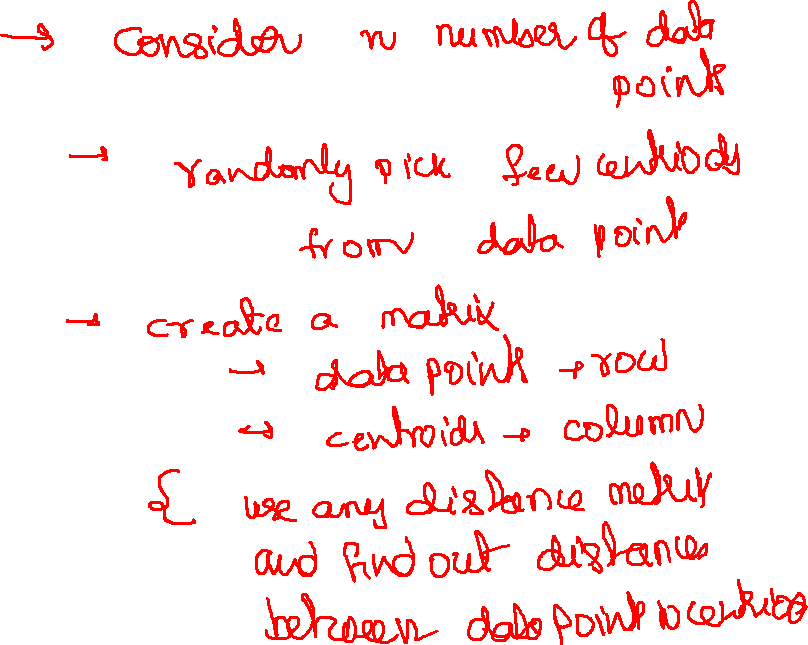 → Consider n number of data
point
→ randomly pick few centriods
from data point
→ create a matrix
→ data point → row
→ centroids → column
{ use any distance metric
and find out distances
between data point n centrioo